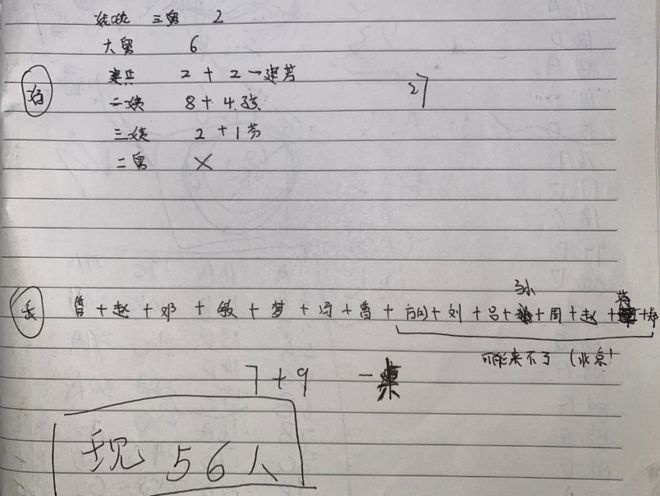 三舅 2
大舅 6
2 + 2 一建芳
二姨 8 + 4
27
三姨 2 + 1 芳
二舅 ×
曾 + 赵 + 邓 + 敏 + 梦 + 冯 + 曹 + 方 + 刘 + 吕 + 孙 + 周 + 赵 + 蒋 + 郑
可能来不了 (北京)
7 + 9 一桌
现 56人